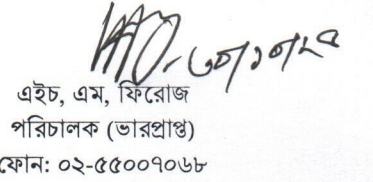 ৩০/১০/২৫
এইচ, এম, ফিরোজ
পরিচালক (ভারপ্রাপ্ত)
ফোন: ০২-৫৫০০৭০৬৮